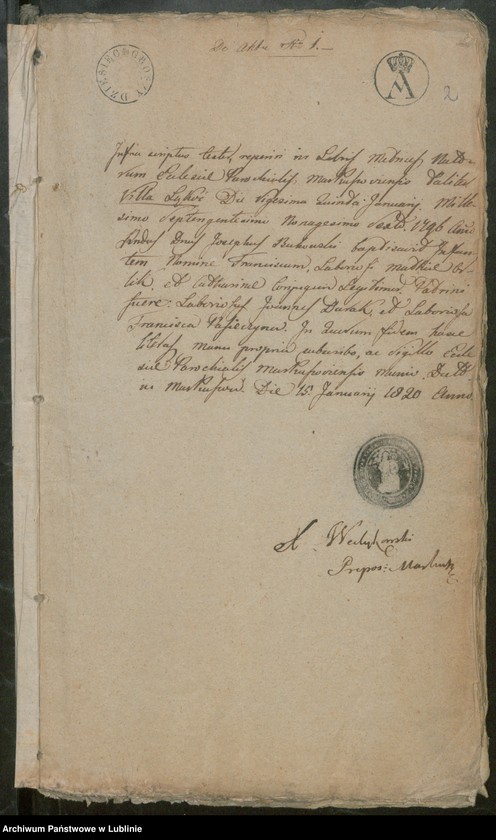 De Aktu Nr 1.
DZIESIĘĆ GROSZY
2
Infra scriptus testor, reperiri in Libris Metrices Nato-
rum Ecclesiæ Parochialis Markuszoviensis Taliter
Villa Łykoć Die Vigesima Quinta January Mille-
simo Septengentesimo Nonagesimo Sexto 1796 Anno
Dnus Josephus Bukowski baptisavit Infan-
tem Nomine Franciscum, Laborios: Mathiæ
lik, et Catharinæ Conjugum Legitimor. Patrini
fuere: Laboriosus Joannes Durak, et Laboriosa
Francisca Papieżyna. In Quorum fidem hasce
literas manu propria subscribo, ac Sigillo Eccle-
siæ Parochialis Markuszoviensis munio. Datt
in Markuszow. Die 15 January 1820 Anno.
X. Wędykowski
Prepos: Markusz.
Archiwum Państwowe w Lublinie